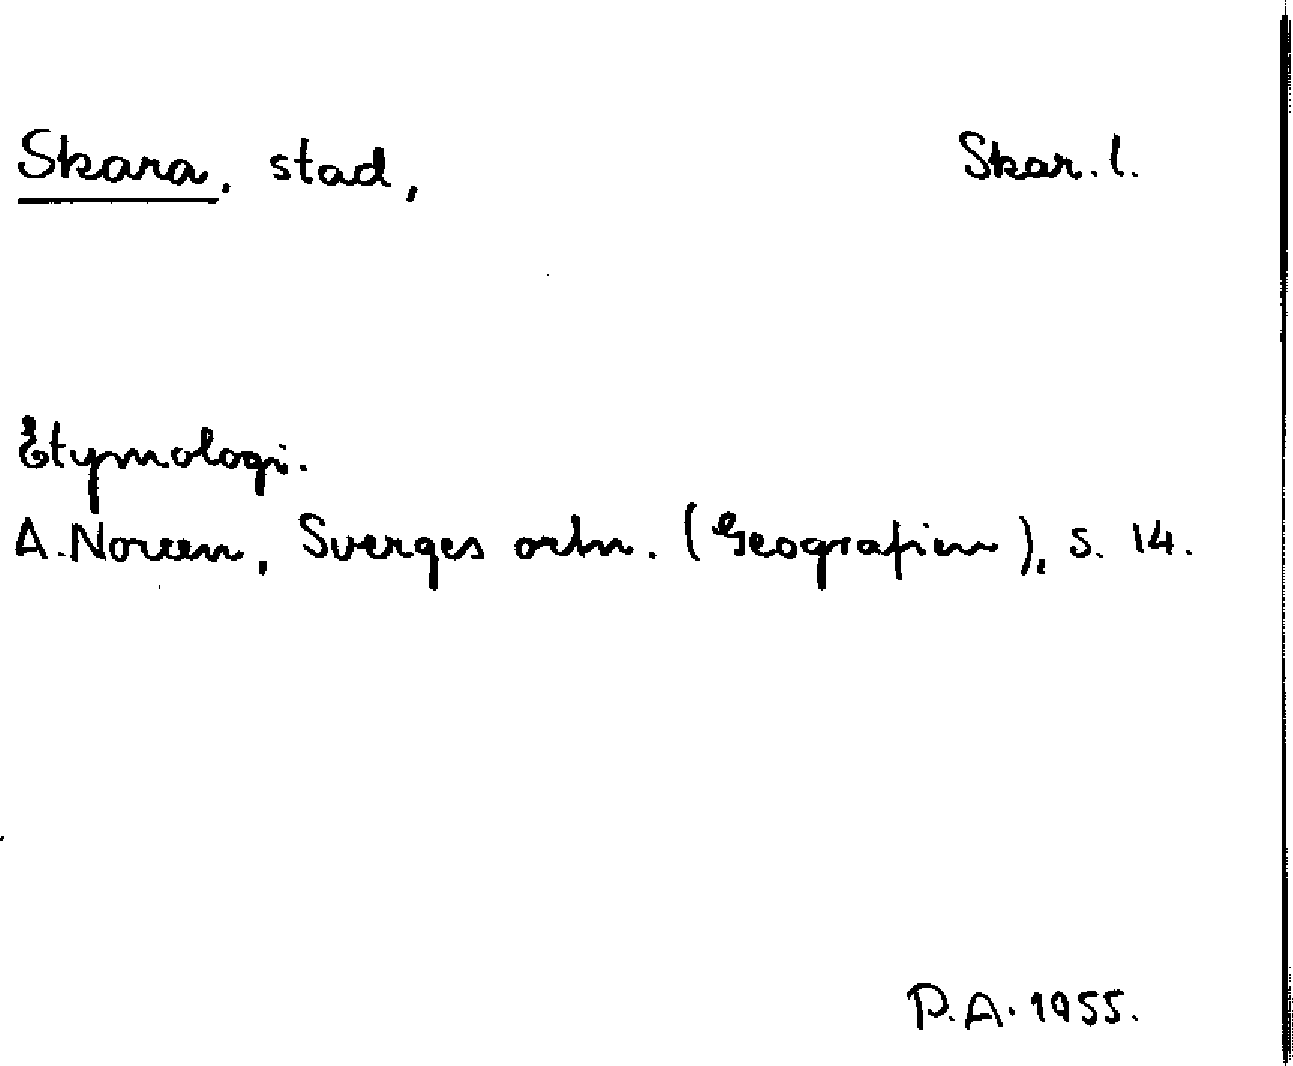 Skara, stad, Skar. l.
Etymologi.
A. Noreen, Sverges ortn. (Geografien), s. 14.
P.A. 1955.